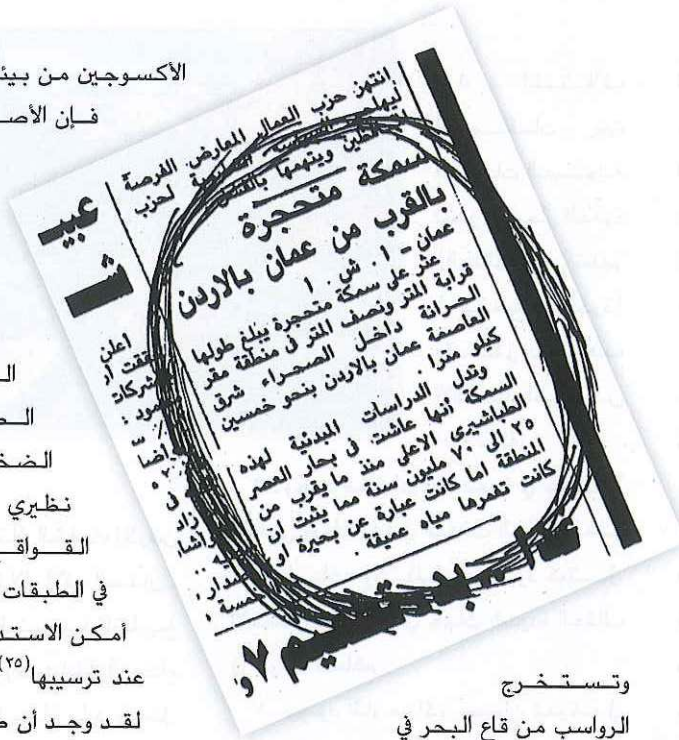 الأكسوجين من بيئ
فإن الأصـ
انتهز حزب العمال المعارض الفرصة
لحزب
ويتهمها بالفشل
سمكة متحجرة
بالقرب من عمان بالاردن
عمان - ا . ش . ا
عثر على سمكة متحجرة يبلغ طولها
قرابة المتر ونصف المتر فى منطقة مقر
الحرانة داخل الصحراء شرق
العاصمة عمان بالاردن بنحو خمسين
كيلو مترا .
وتدل الدراسات المبدئية لهذه
السمكة أنها عاشت فى بحار العصر
الطباشيرى الاعلى منذ ما يقرب من
٢٥ الى ٧٠ مليون سنة مما يثبت ان
المنطقة اما كانت عبارة عن بحيرة او
كانت تغمرها مياه عميقة .
عبيـ
شـ
اعلن
الـ
الضخـ
نظيري
القواقـ
في الطبقات
أمكن الاستد
عند ترسيبها(٢٥)
لقد وجد أن
وتستخرج
الرواسب من قاع البحر في